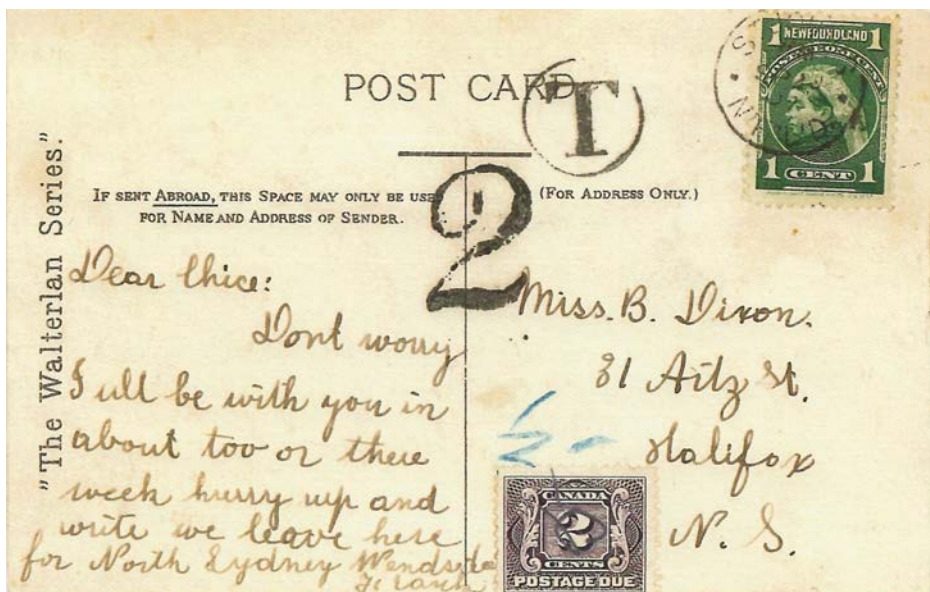 POST CARD
T
2
"The Walterlan Series."
IF SENT ABROAD, THIS SPACE MAY ONLY BE USE
FOR NAME AND ADDRESS OF SENDER.
(FOR ADDRESS ONLY.)
1 NEWFOUNDLAND 1
POSTAGE ONE CENT
1 CENT 1
Dear Chice:
Dont worry
I ull be with you in
about too or there
week hurry up and
write we leave here
for North Sydney
Frank
Miss. B. Dixon.
81 St.
Halifax
N. S.
CANADA
2
CENTS
POSTAGE DUE